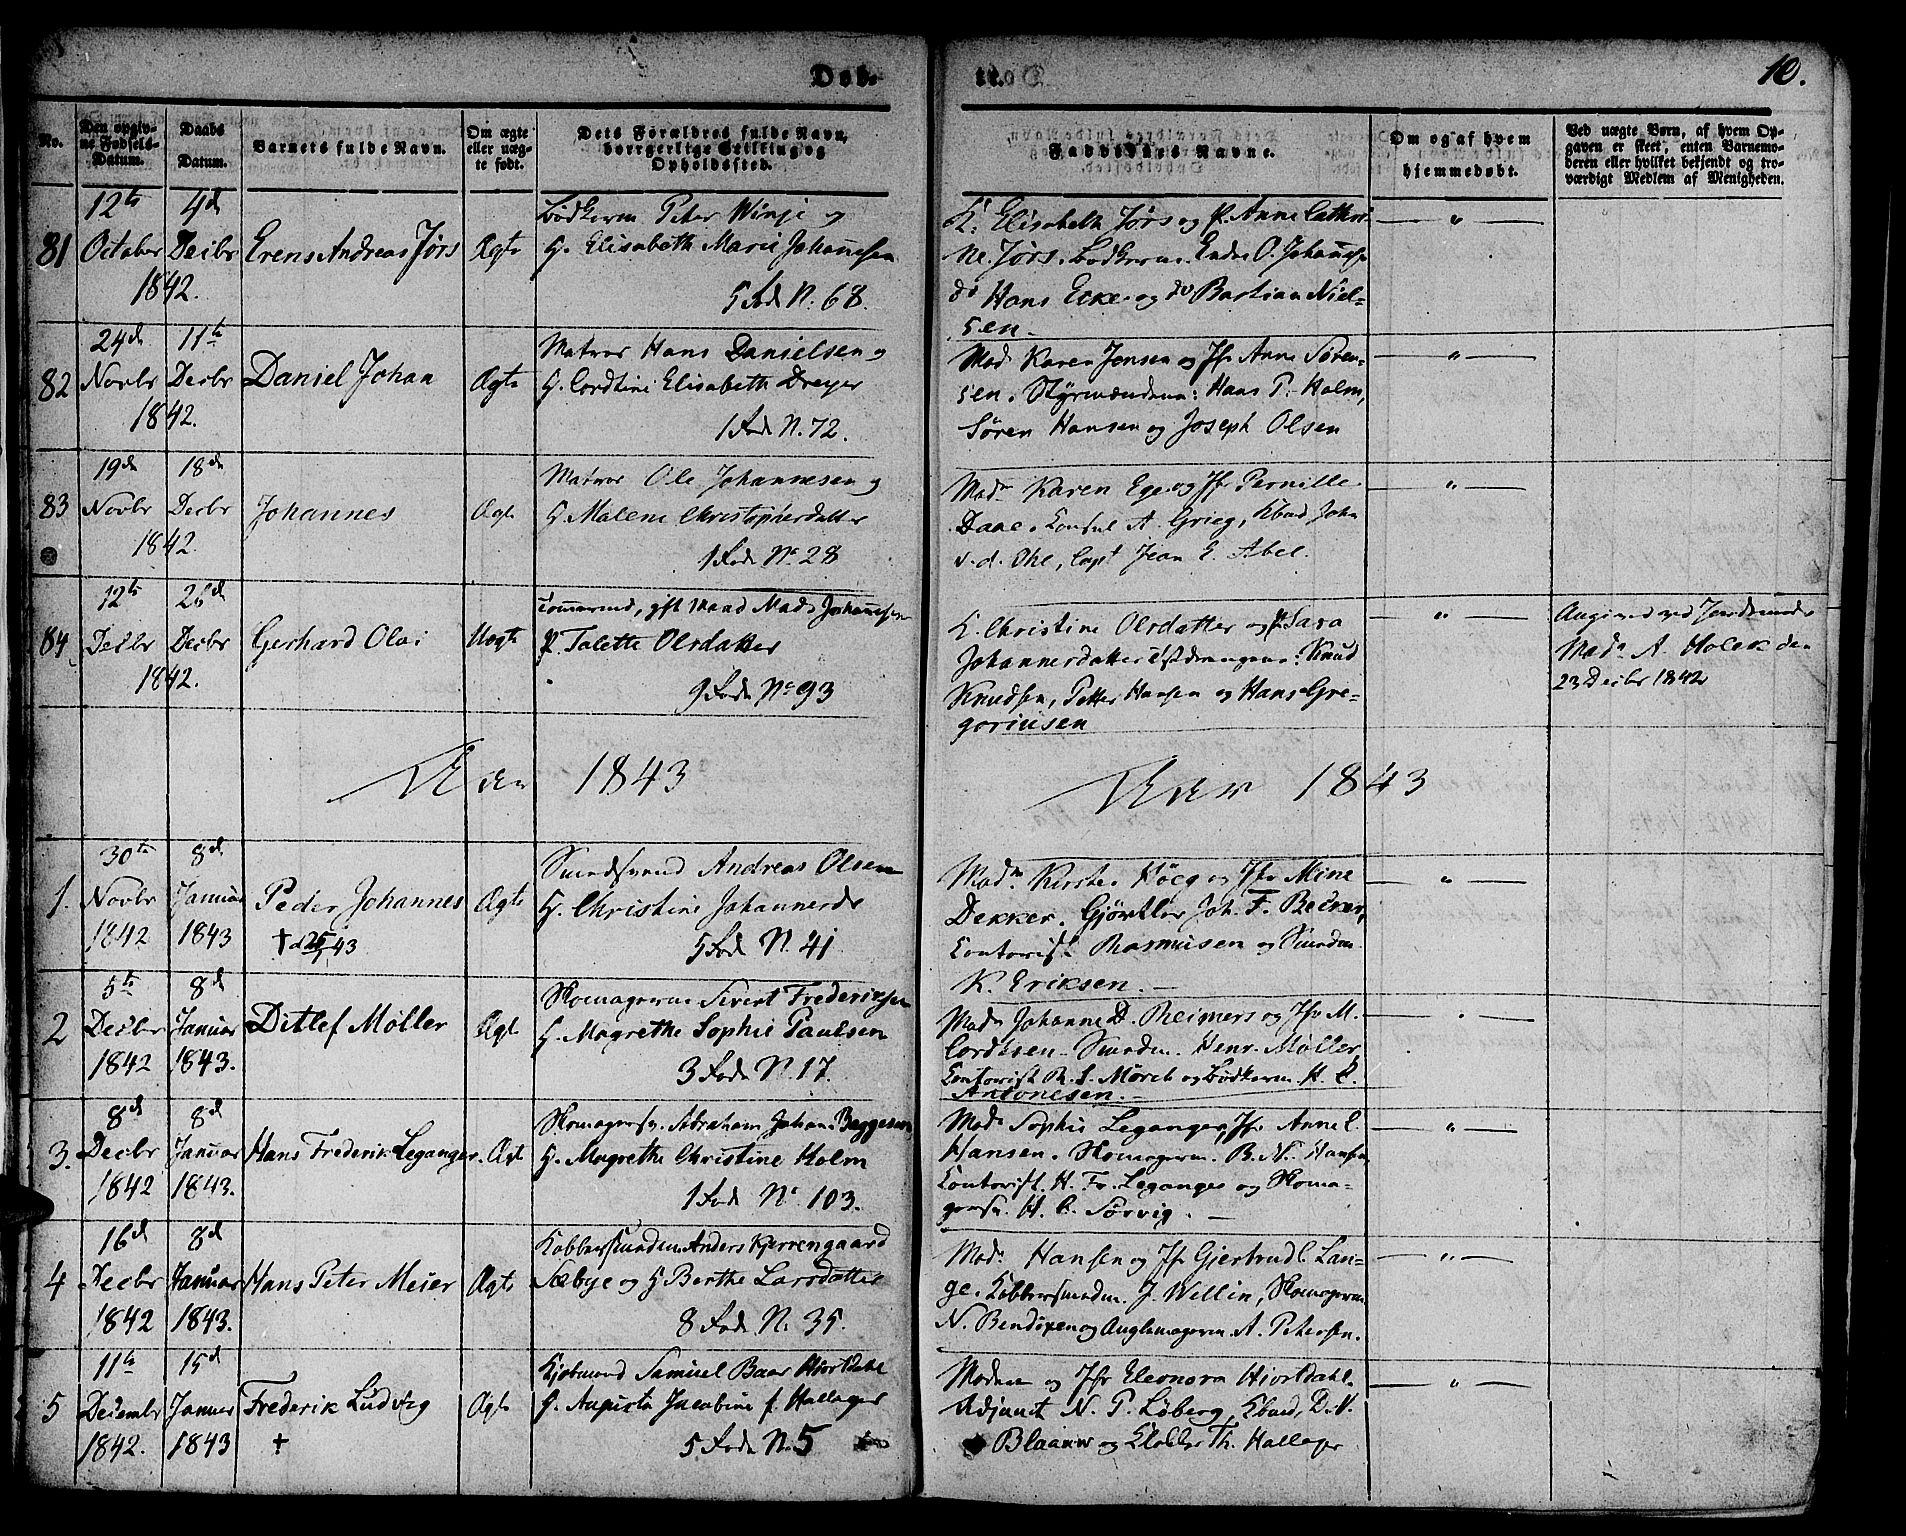 Døb.
10.
No.
Den opgiv-
ne Fødsels-
Datum.
Daabs
Datum.
Barnets fulde Navn.
Om ægte
eller uæg-
te født.
Dets Forældres fulde Navn,
borgerlige Stilling og
Opholdssted.
Faddernes Navne.
Om og af hvem
hjemmedøbt.
Ved uægte Børn, af hvem Op-
gaven er skeet, enten Barnemo-
deren eller hvilket bekjendt og tro-
værdigt Medlem af Menigheden.
81
12te October 1842.
4de Decbr
Erens Andreas Jørs
Ægte
Bødkersv. Peter Winje og
H. Elisabeth Marie Johannesen
5 Rode N. 68.
K. Elisabeth Jørs og P. Anne Cathri-
ne Jørs. Bødkersv. Endre O. Johannes
do Hans Ecke og do Bastian Niel-
sen
82
24de Novbr 1842.
11te Decbr
Daniel Johan
Ægte
Matros Hans Danielsen og
H. Cordtine Elisabeth Dreyer
1 Rode N. 72.
Mad. Karen Jensen og Jfr Anne Søren-
sen. Styrmændene: Hans P. Holm,
Søren Hansen og Joseph Olsen
83
19de Novbr 1842.
18de Decbr
Johannes
Ægte
Matros Ole Johannesen og
H. Malene Christophersdatter
1 Rode No 28
Madm Karen Ege og Jfr Pernille
Daae. Konsul A. Grieg, Kbmd John
v. d. Ohe, Capt Jean E. Abel.
84
12te Decbr 1842.
26de Decbr
Gerhard Olai
Uægte
Tømmermd, gift Mand Mads Johannesen
P. Talette Olsdatter
9 Rode No 93
K. Christine Olsdatter og P. Sara
Johannesdatter Knud
Knudsen, Petter Hansen og Hans Gre-
goriusen
Angivet ved Jordemoder
Madm A. Holck den
23 Decbr 1842
Aar 1843
Aar 1843
1.
30te Novbr 1842
8de Januar 1843
Peder Johannes
† d 25/1 43
Ægte
Smedsvend Andreas Olsen
H. Christine Johannesd.
5 Rode N. 41
Madm Kirste Høeg og Jfr Mine
Dekker. Gjørtler Joh. F. Becker,
Contorist Rasmusen og Smedm
K. Eriksen.
2
5te Decbr 1842
8de Januar 1843.
Ditlef Møller
Ægte
Skomagersv. Sivert Frederiksen
H. Magrethe Sophie Paulsen
3 Rode N. 17.
Madm Johanne D. Reimers og Jfr M.
Cordtsen. Smedm. Henr. Møller
Contorist R. S. Mørch og Bødkersv. H. C.
Antonesen.
3.
8de Decbr 1842
8de Januar 1843.
Hans Frederik Leganger.
Ægte
Skomagersv. Abraham Johan Baggesen
H. Magrethe Christine Holm
1 Rode No 103.
Madm Sophie Leganger, Jfr Anne C.
Hansen. Skomagerm. B. N. Hansen
Contorist H. Fr. Leganger og Skoma-
gersv. H. C. Sørvig.
4
16de Decbr 1842
8de Januar 1843.
Hans Peter Meier
Ægte
Kobbersmedm Anders Kjerrengaard
Sæbye og H Berthe Larsdatter
8 Rode N. 35.
Madm Hansen og Jfr Gjertrud C. Lan-
ge. Kobbersmedm. J. Wellin, Skomagerm
N. Bendixen og A. Petersen.
5
11te Decembr 1842.
15de Januar 1843
Frederik Ludvig
†
Ægte
Kjøbmand Samuel Baar Hjortdahl
H. Augusta Jacobine f. Hallager
5 Rode N. 5
Moderen og Jfr Eleonora Hjortdahl.
Adjunct N. P. Løberg, Kbmd, D. V.
Blaauw og Klokker Th. Hallager